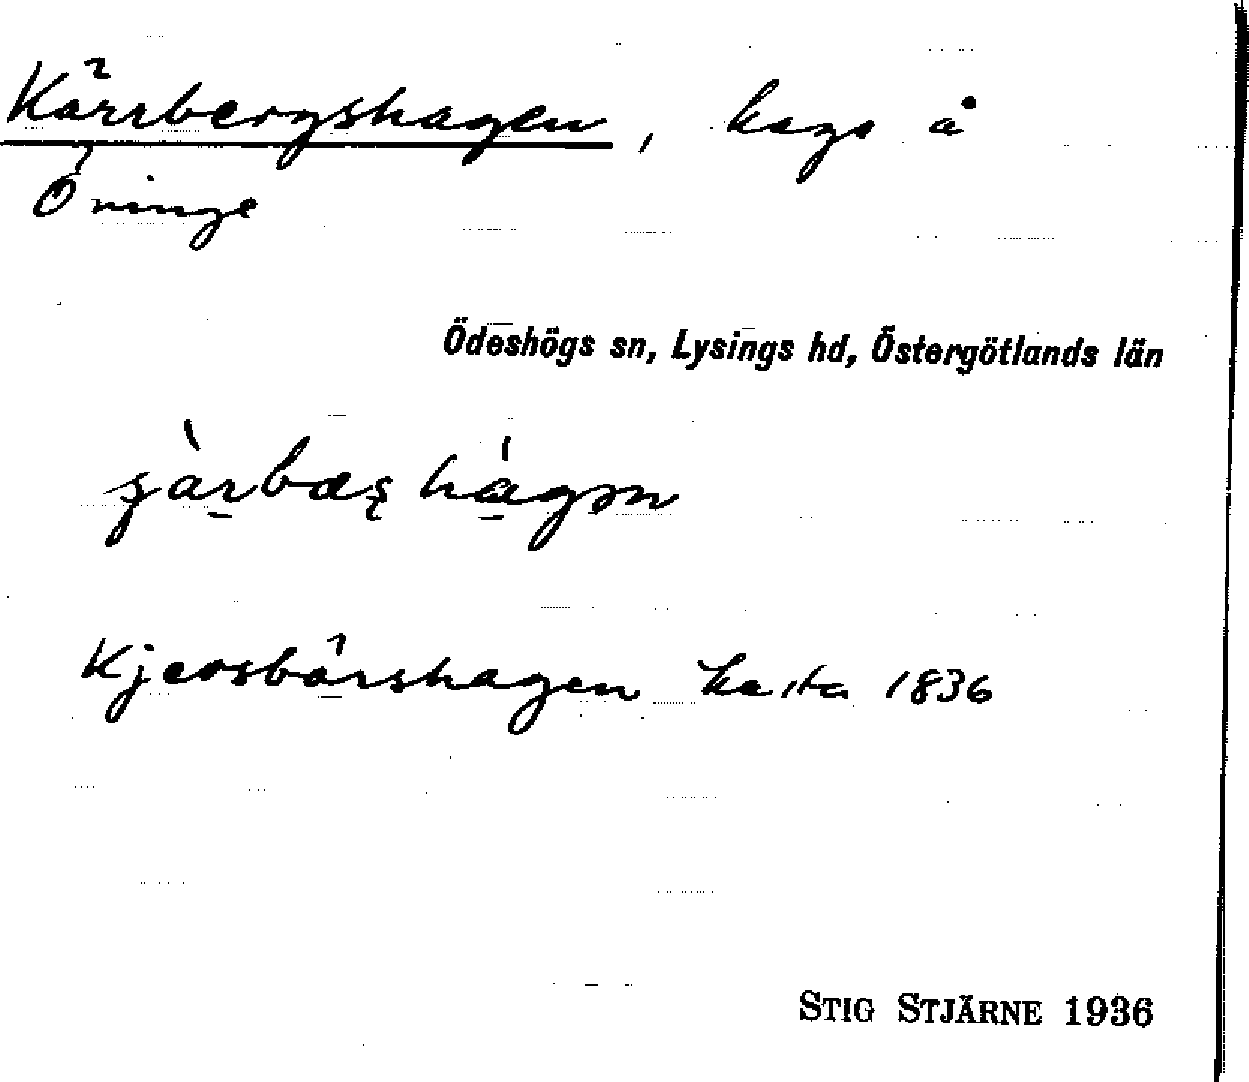 Kärrbergshagen, hage å
Öninge
Ödeshögs sn, Lysings hd, Östergötlands län
Kjersbärshagen karta 1836
STIG STJÄRNE 1936